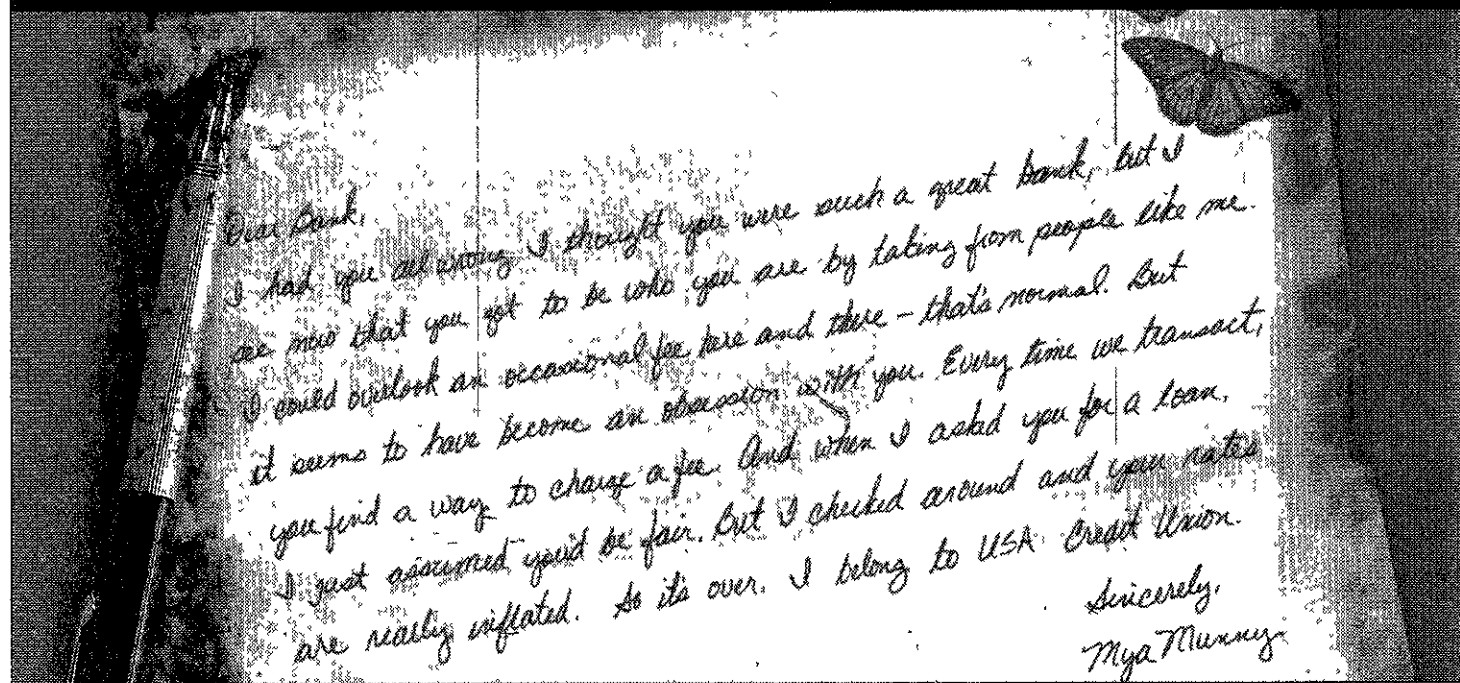 Dear Bank,
I had you all wrong I thought you were such a great bank, but I
see now that you got to be who you are by taking from people like me.
I could overlook an occasional fee here and there - that's normal. But
it seems to have become an obsession with you. Every time we transact,
you find a way to charge a fee. And when I asked you for a loan,
I just assumed you'd be fair. But I checked around and your rates
are really inflated. So it's over. I belong to USA Credit Union.
Sincerely,
Mya Munny